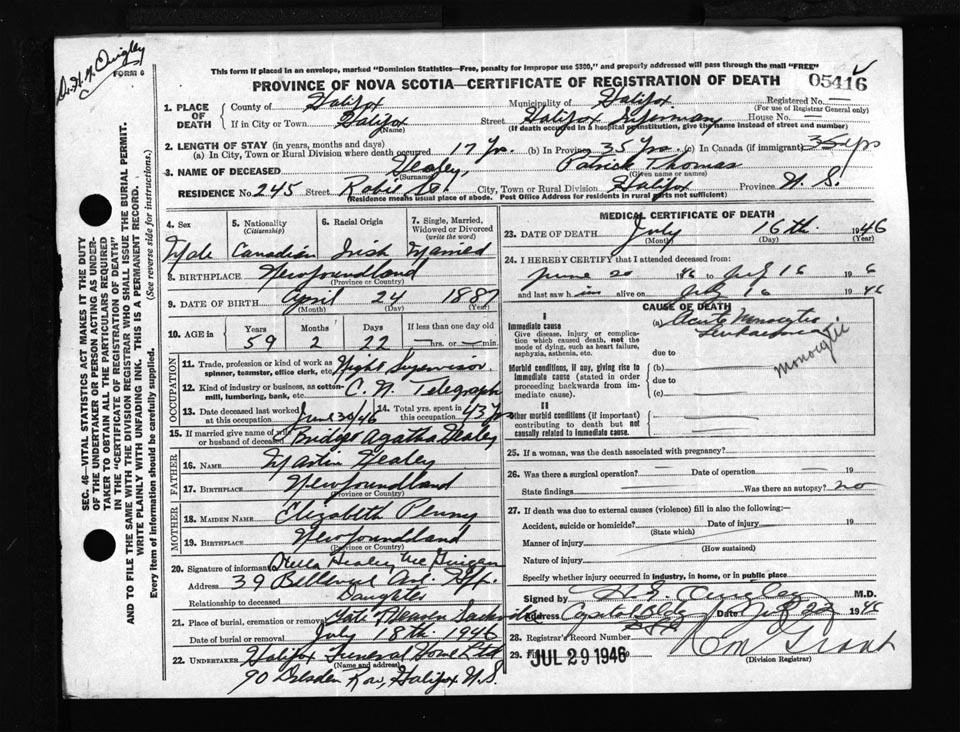 Dr. H. G. Quigley
FORM 6
This form if placed in an envelope, marked "Dominion Statistics—Free, penalty for improper use $300," and properly addressed will pass through the mail "FREE"
PROVINCE OF NOVA SCOTIA—CERTIFICATE OF REGISTRATION OF DEATH
05416
1. PLACE OF DEATH County of Halifax Municipality of Halifax Registered No. —
(For use of Registrar General only)
If in City or Town Halifax Street Halifax Infirmary House No. —
(Name) (If death occurred in a hospital or institution, give the name instead of street and number)
2. LENGTH OF STAY (in years, months and days)
(a) In City, Town or Rural Division where death occurred 17 yrs. (b) In Province 35 yrs. (c) In Canada (if immigrant) 35 yrs
3. NAME OF DECEASED Healey, Patrick Thomas
(Surname) (Given name or names)
RESIDENCE No 245 Street Robie St. City, Town or Rural Division Halifax Province N. S.
(Residence means usual place of abode. Post Office Address for residents in rural parts not sufficient)
4. Sex 5. Nationality (Citizenship) 6. Racial Origin 7. Single, Married, Widowed or Divorced (write the word)
Male Canadian Irish Married
8. BIRTHPLACE Newfoundland
(Province or Country)
9. DATE OF BIRTH April 24 1887
(Month) (Day) (Year)
10. AGE in Years Months Days If less than one day
59 2 22 — hrs. or — min.
OCCUPATION
11. Trade, profession or kind of work as spinner, teamster, office clerk, etc. Night Supervisor
12. Kind of industry or business, as cotton-mill, lumbering, bank, etc. C. N. Telegraph
13. Date deceased last worked at this occupation June 20/46 14. Total yrs. spent in this occupation 43 yrs
15. If married give name of wife or husband of deceased Bridget Agatha Healey
FATHER
16. NAME Martin Healey
17. BIRTHPLACE Newfoundland
(Province or Country)
MOTHER
18. MAIDEN NAME Elizabeth Penny
19. BIRTHPLACE Newfoundland
(Province or Country)
20. Signature of informant Healey
Address 39 Ave. Hfx.
Relationship to deceased Daughter
21. Place of burial, cremation or removal Gate of Heaven Sackville
Date of burial or removal July 18th. 1946
22. UNDERTAKER Halifax Funeral Home Ltd
(Name and address)
90 Row, Halifax N. S.
MEDICAL CERTIFICATE OF DEATH
23. DATE OF DEATH July 16th. 1946
(Month) (Day) (Year)
24. I HEREBY CERTIFY that I attended deceased from:
June 20 1946 to July 16 1946
and last saw him alive on July 16 1946
CAUSE OF DEATH
I
Immediate cause
Give disease, injury, or complication which caused death, not the mode of dying, such as heart failure, asphyxia, asthenia, etc.
(a) Acute Monocytic Leukaemia
monocytic
due to
Morbid conditions, if any, giving rise to immediate cause (stated in order proceeding backwards from immediate cause).
(b)
due to
(c)
II
Other morbid conditions (if important) contributing to death but not causally related to immediate cause.
25. If a woman, was the death associated with pregnancy?
26. Was there a surgical operation? — Date of operation — 19
State findings Was there an autopsy? no
27. If death was due to external causes (violence) fill in also the following:—
Accident, suicide or homicide? Date of injury 19
(State which)
Manner of injury
(How sustained)
Nature of injury
Specify whether injury occurred in industry, in home, or in public place
Signed by H. G. Quigley M.D.
Address Capitol Bldg Date July 1946
28. Registrar's Record Number
29. Filed JUL 29 1946
Grant
(Division Registrar)
SEC. 46—VITAL STATISTICS ACT MAKES IT THE DUTY OF THE UNDERTAKER OR PERSON ACTING AS UNDERTAKER TO OBTAIN ALL THE PARTICULARS REQUIRED IN THE "CERTIFICATE OF REGISTRATION OF DEATH" AND TO FILE THE SAME WITH THE DIVISION REGISTRAR WHO SHALL ISSUE THE BURIAL PERMIT.
WRITE PLAINLY WITH UNFADING INK. THIS IS A PERMANENT RECORD.
Every item of information should be carefully supplied. (See reverse side for instructions.)